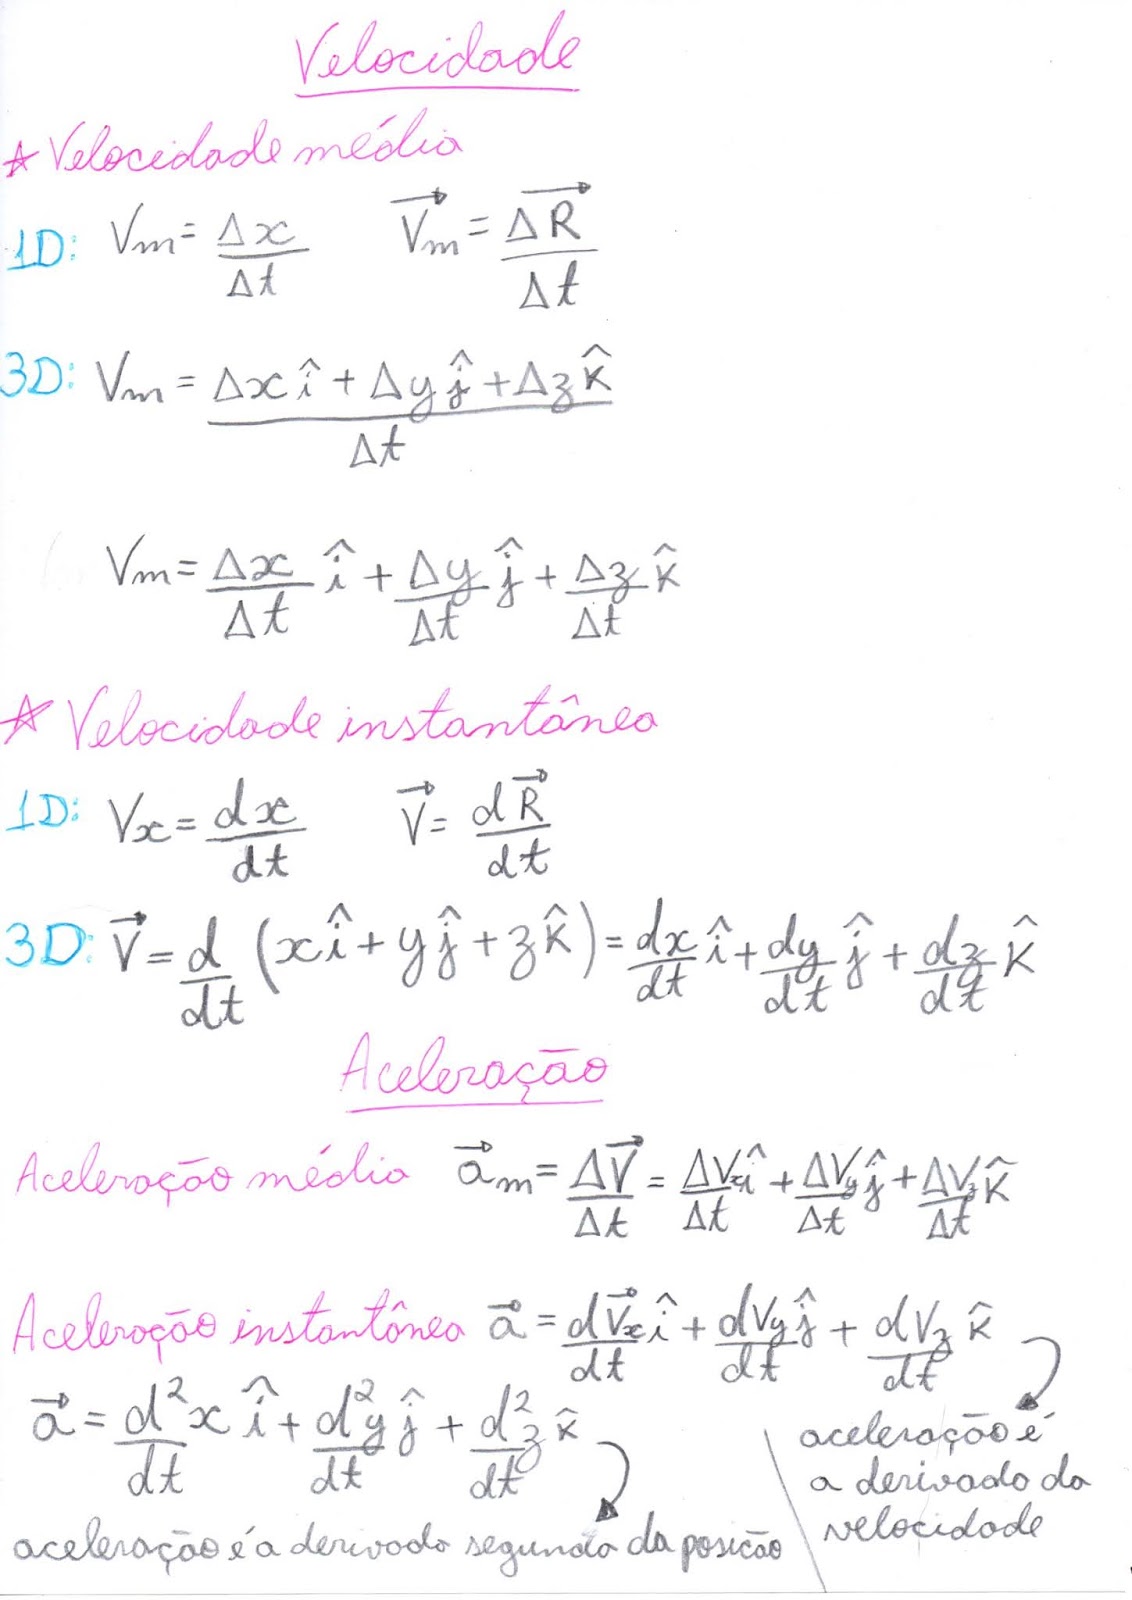 Velocidade
☆ Velocidade média
1D: Vm = Δx/Δt    V⃗m = ΔR⃗/Δt
3D: Vm = (Δx î + Δy ĵ + Δz k̂)/Δt
Vm = Δx/Δt î + Δy/Δt ĵ + Δz/Δt k̂
☆ Velocidade instantânea
1D: Vx = dx/dt    V⃗ = dR⃗/dt
3D: V⃗ = d/dt (x î + y ĵ + z k̂) = dx/dt î + dy/dt ĵ + dz/dt k̂
Aceleração
Aceleração média a⃗m = ΔV⃗/Δt = ΔVx/Δt î + ΔVy/Δt ĵ + ΔVz/Δt k̂
Aceleração instantânea a⃗ = dV⃗x/dt î + dVy/dt ĵ + dVz/dt k̂
a⃗ = d²x/dt î + d²y/dt ĵ + d²z/dt k̂
aceleração é
a derivada da
velocidade
aceleração é a derivada segunda da posicão